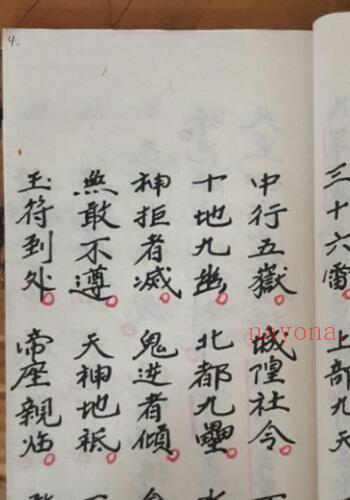 4.
三十六雷 上部九天
中行五嶽。城隍社令。
十地九幽。北都九壘。
神拒者滅。鬼進者傾。
無敢不遵。天神地祗。
玉符到处。帝座親临。
nayona